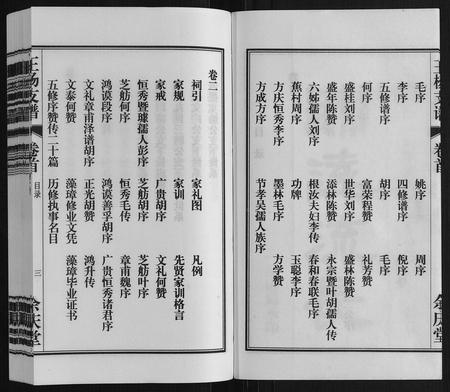 毛序 姚序 周序
李序 四修谱序 倪序
五修谱序 胡序 毛序
何序 富荣程赞 礼芳赞
盛桂刘序 世华刘序 盛林陈赞
盛年陈赞 添林陈赞 永宗暨叶胡孺人传
六姊孺人刘序 根汝夫妇李传 春和春联毛序
蕉村周序 功牌 玉聪李序
方庆恒秀李序 墨林毛序 方学赞
方成方序 节孝吴孺人族序
余庆堂
卷二
祠引 家礼图 凡例
家规 家训 先贤家训格言
家戒 广贵胡序 文礼何赞
恒秀暨孺人彭序 芝舫胡序 芝舫叶序
芝舫何序 恒秀毛传 章甫魏序
鸿谟段序 鸿谟善孚胡序 广贵恒秀诸君序
文礼章甫泽谱胡序 正光胡赞 鸿升传
文泰何赞 藻璋修业文凭 藻璋毕业证书
五修序赞传二十篇 历修执事名目
王杨支谱 卷首 目录 三 余庆堂